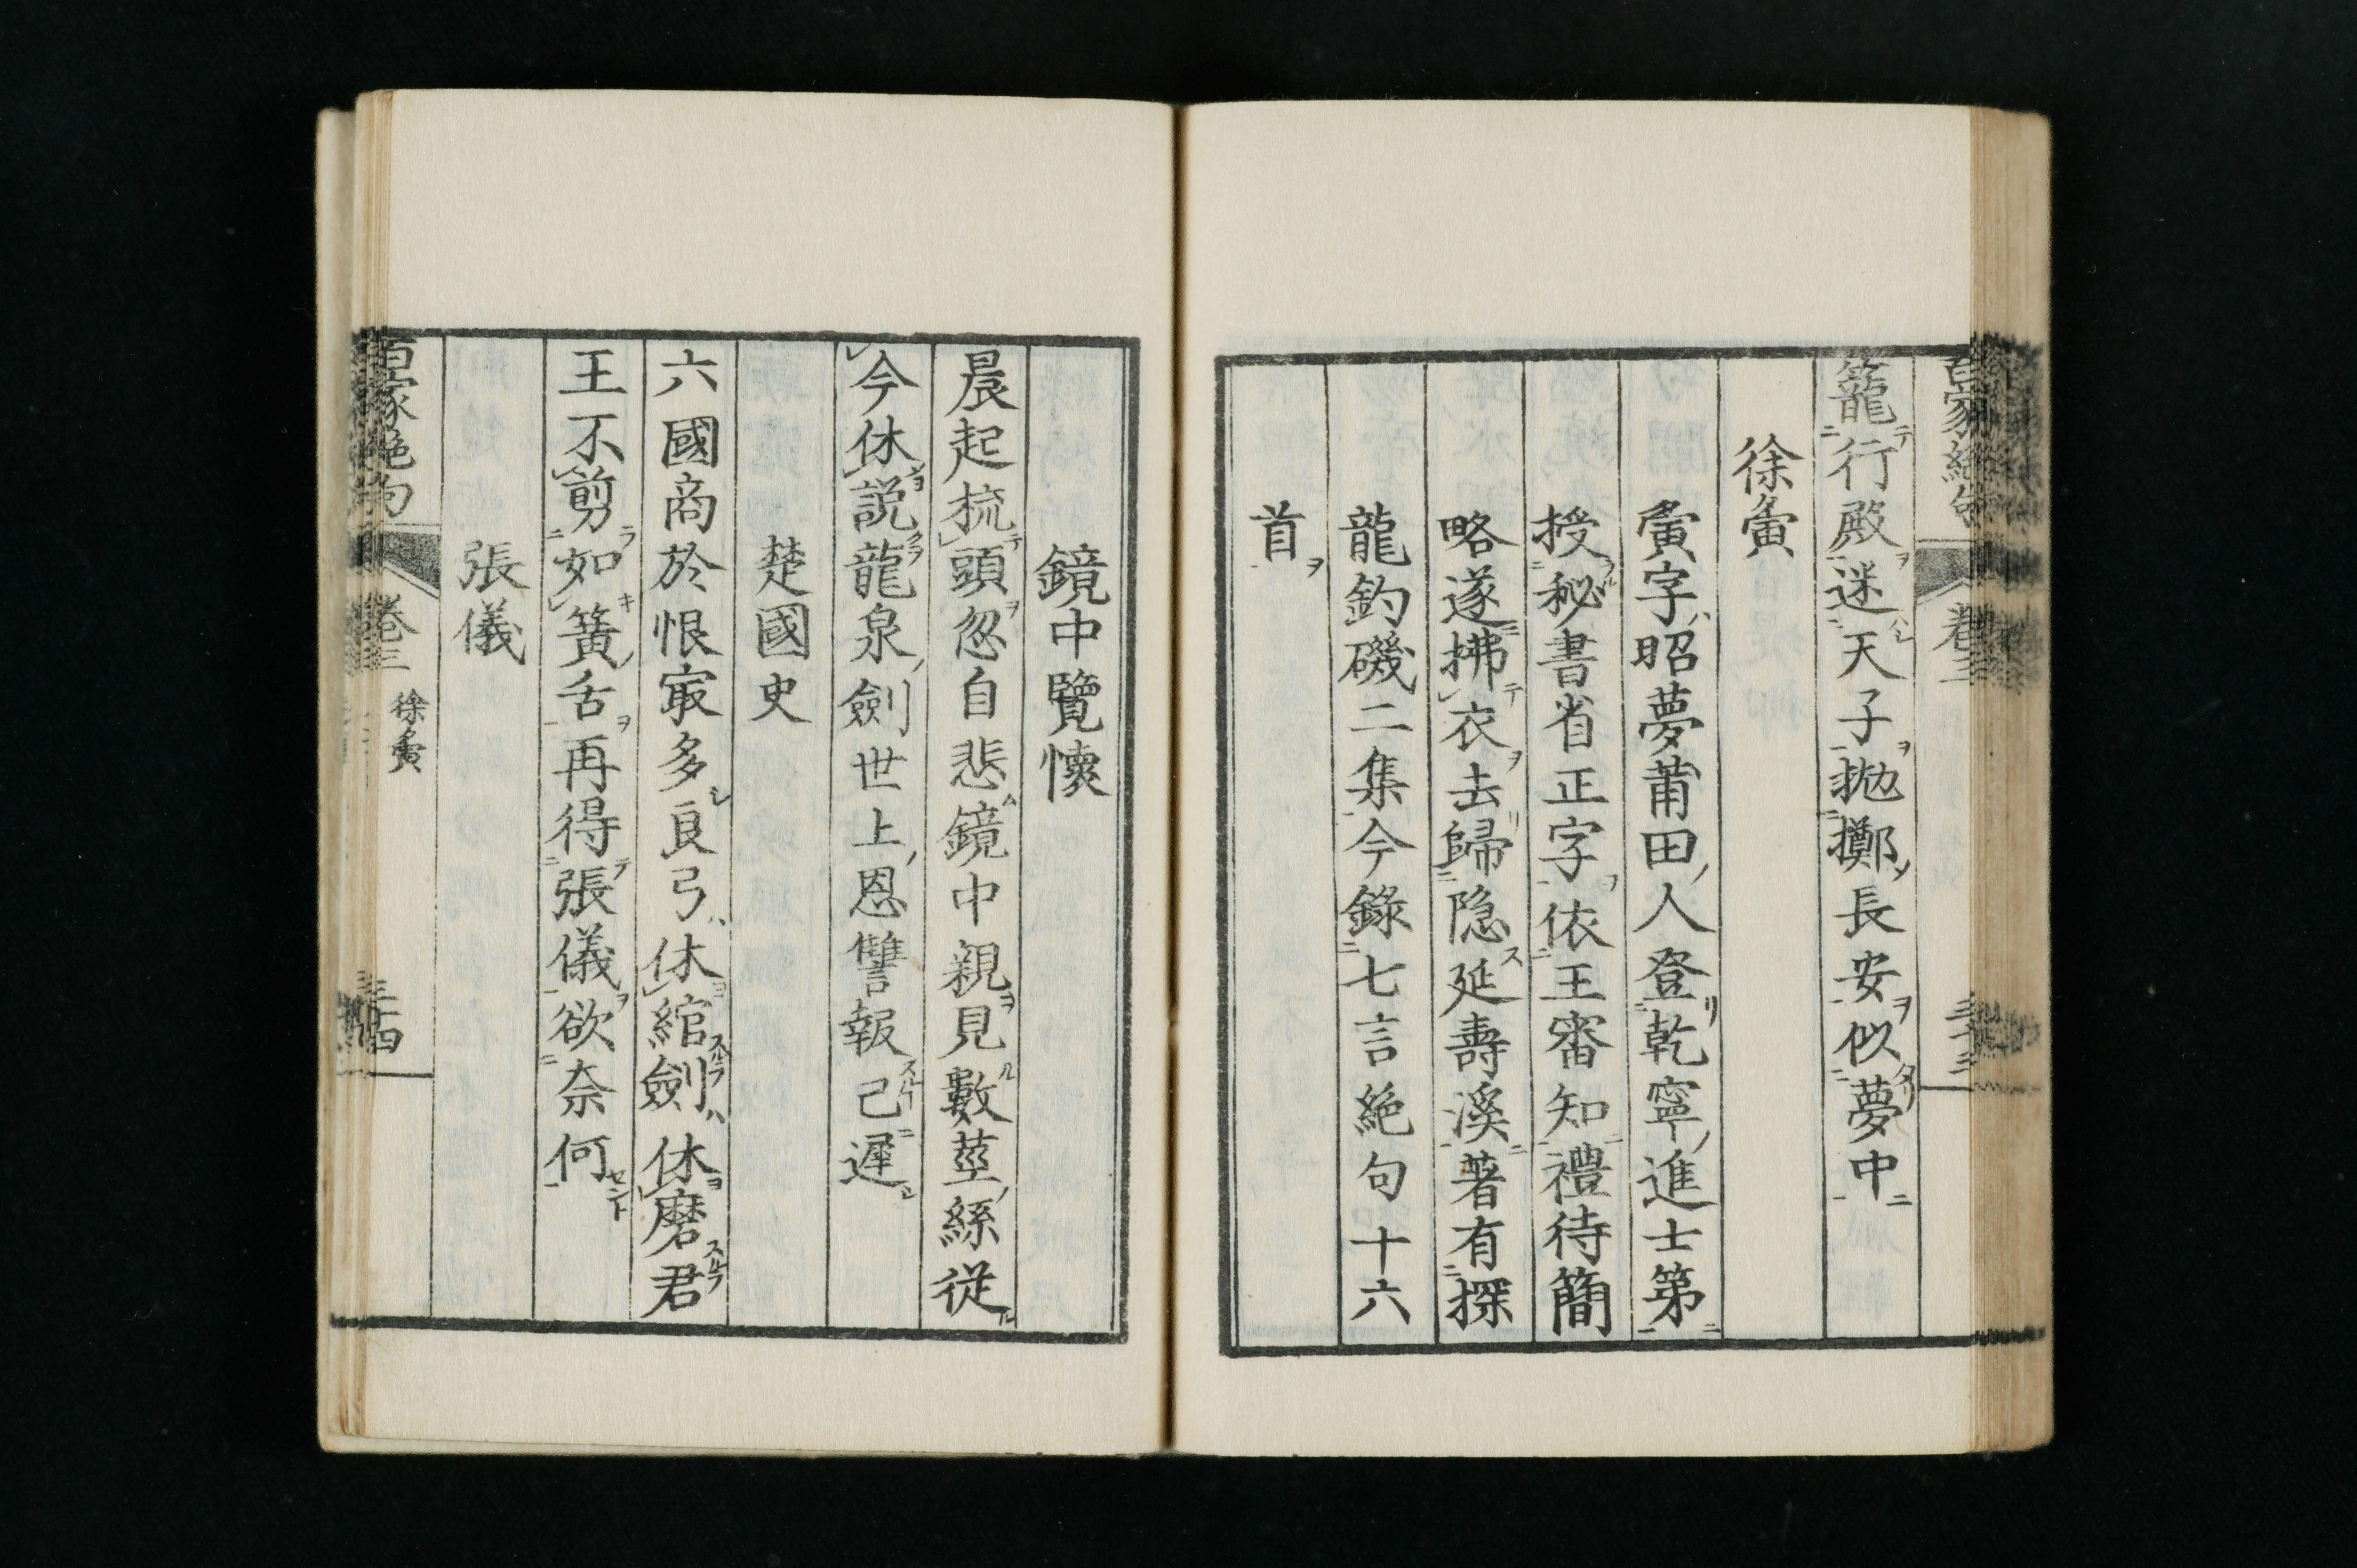 百家絶句
卷三
三十三
籠行殿迷天子抛擲長安似夢中
徐夤
夤字昭夢莆田人登乾寧進士第
授秘書省正字依王審知禮待簡
略遂拂衣去歸隐延壽溪著有探
龍釣磯二集今錄七言絶句十六
首
鏡中覽懷
晨起梳頭忽自悲鏡中親見數莖絲從
今休説龍泉劍世上恩讐報已遲
楚國史
六國商於恨㝡多良弓休綰劍休磨君
王不剪如簧舌再得張儀欲奈何
張儀
百家絶句
卷三
徐夤
三十四